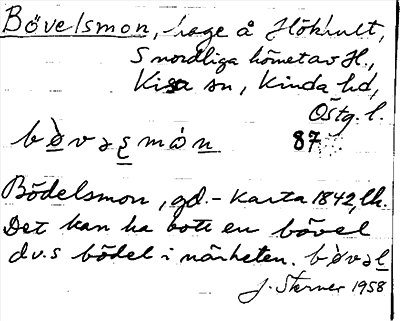 Bövelsmon, hage å Hökhult,
S nordliga hörnet av H.,
Kisa sn, Kinda hd,
Östg. l.
bòvəsmón 87
Bödelsmon, gd.- karta 1842, lk.
Det kan ha bott en bövel
dvs bödel i närheten. bòvəl
J. Sterner 1958